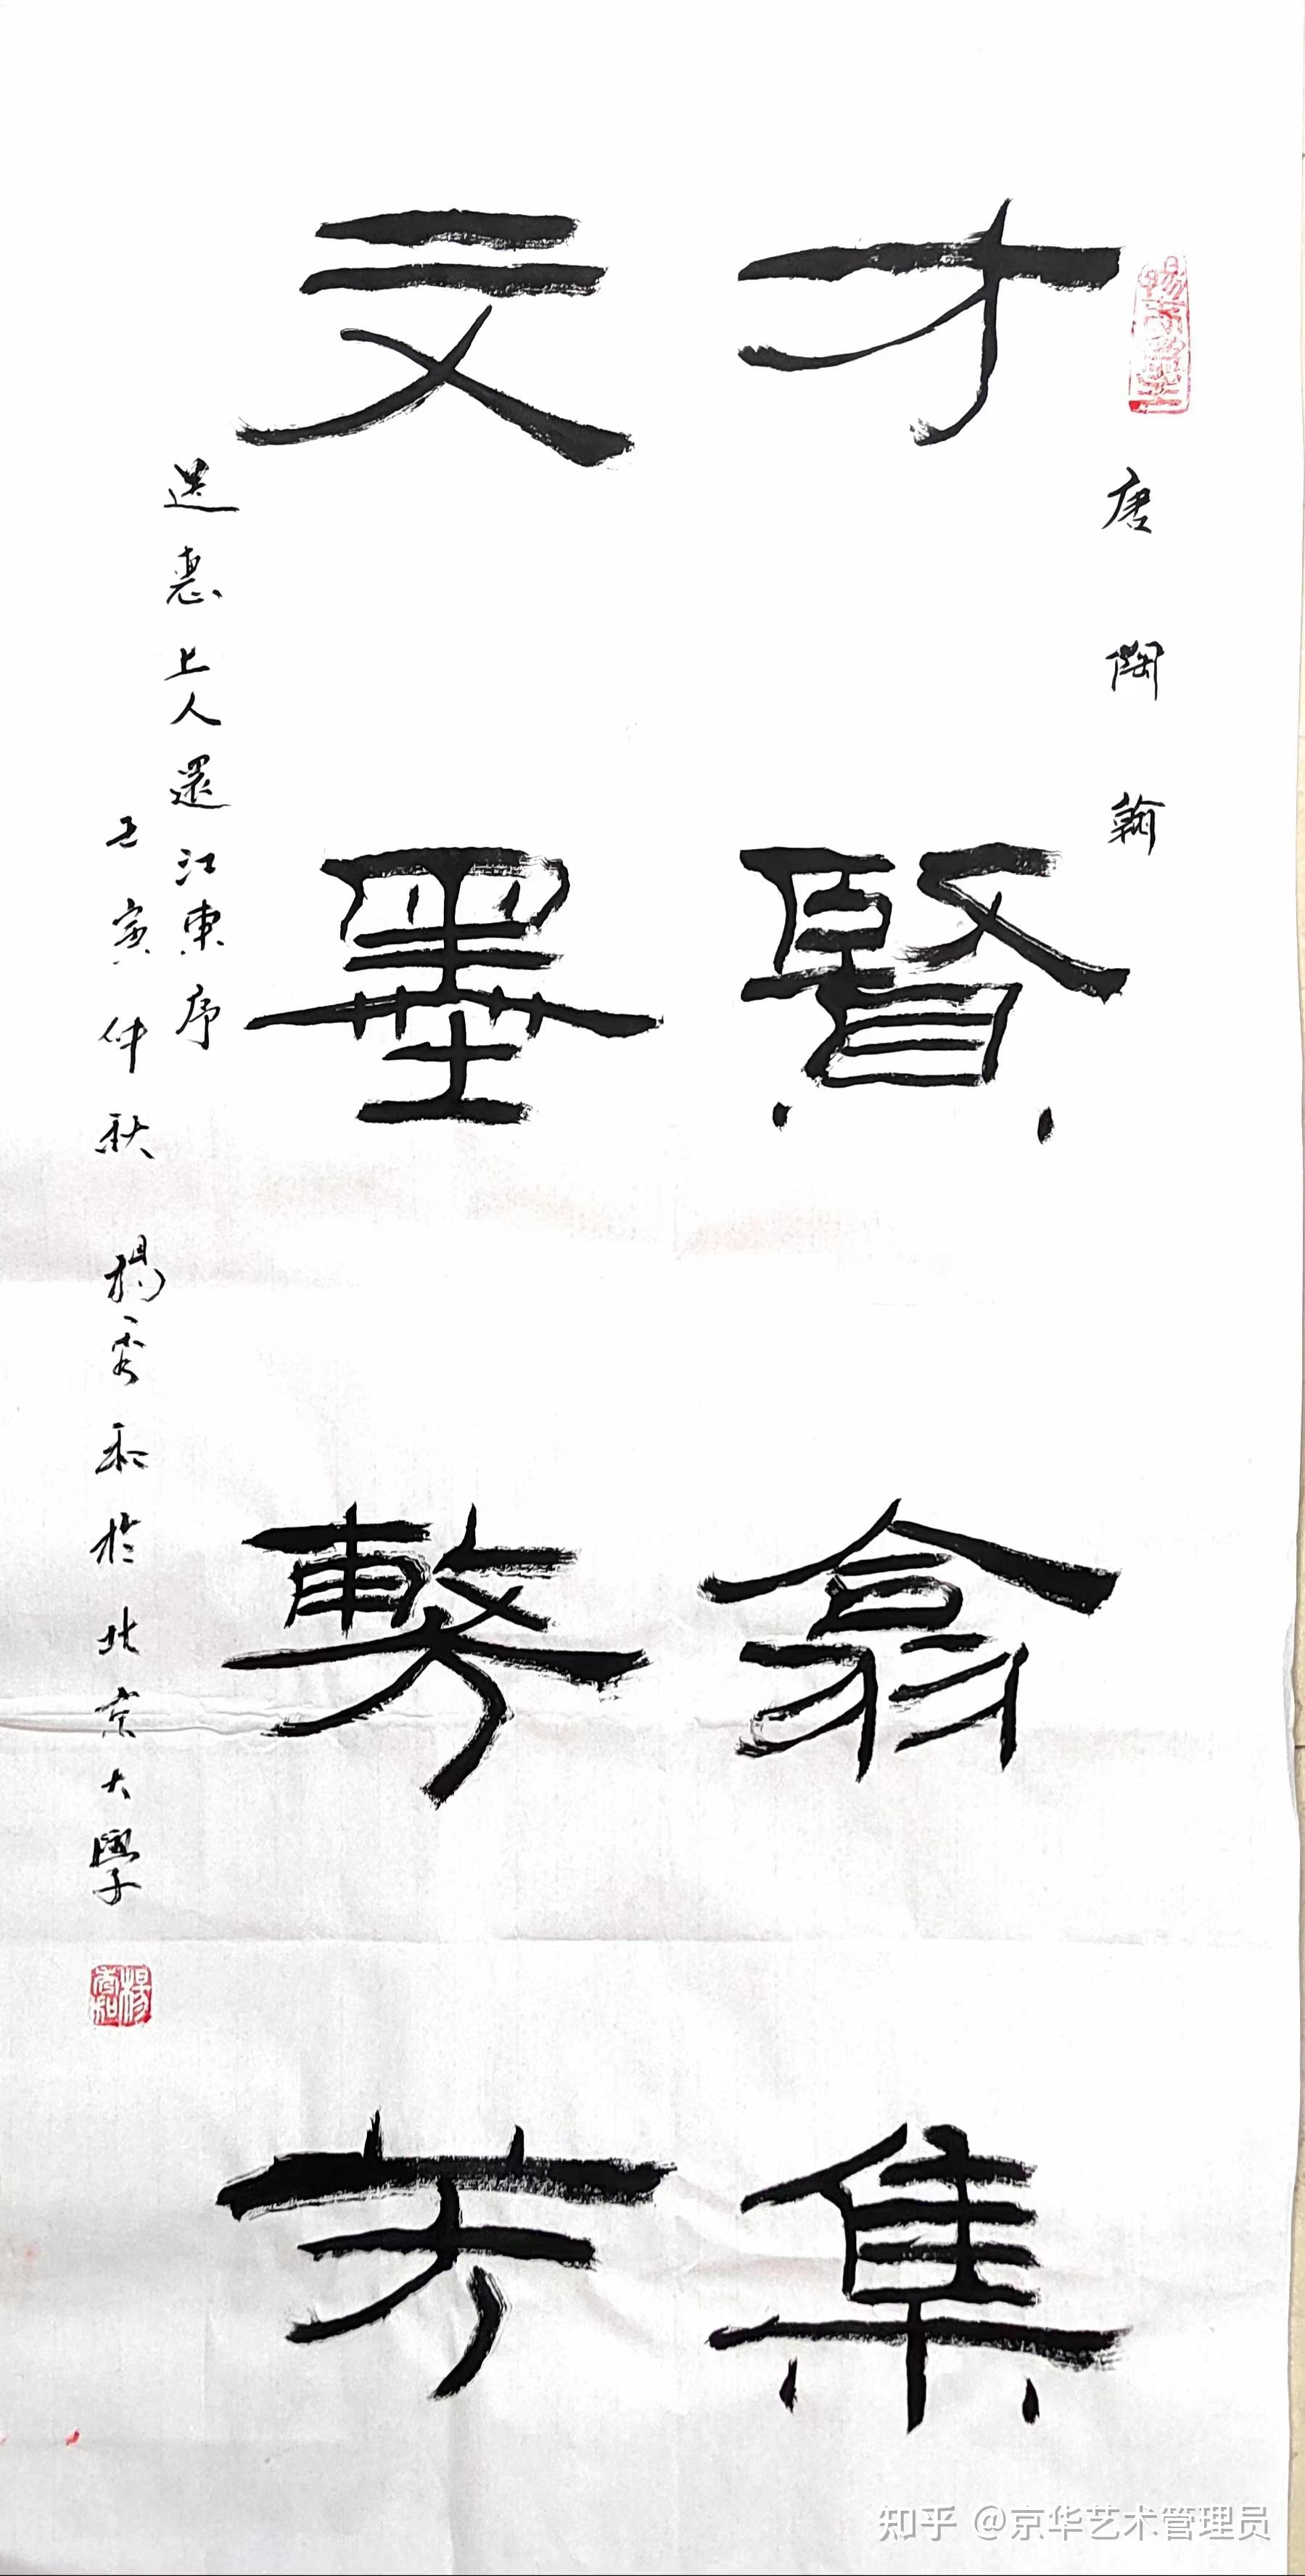 唐陶翰
才賢翕集
文墨敷芳
送惠上人還江東序
壬寅仲秋 楊秀和於北京大學
楊秀和
知乎 @京华艺术管理员